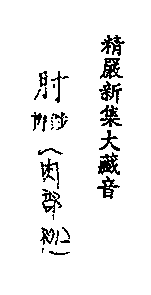 精嚴新集大藏音
肘
陟柳
(肉部